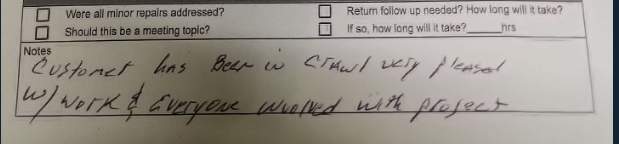 Were all minor repairs addressed? Return follow up needed? How long will it take?
Should this be a meeting topic? If so, how long will it take?______hrs
Notes
Customer has Been in crawl very pleased
w/ work & Everyone involved with project